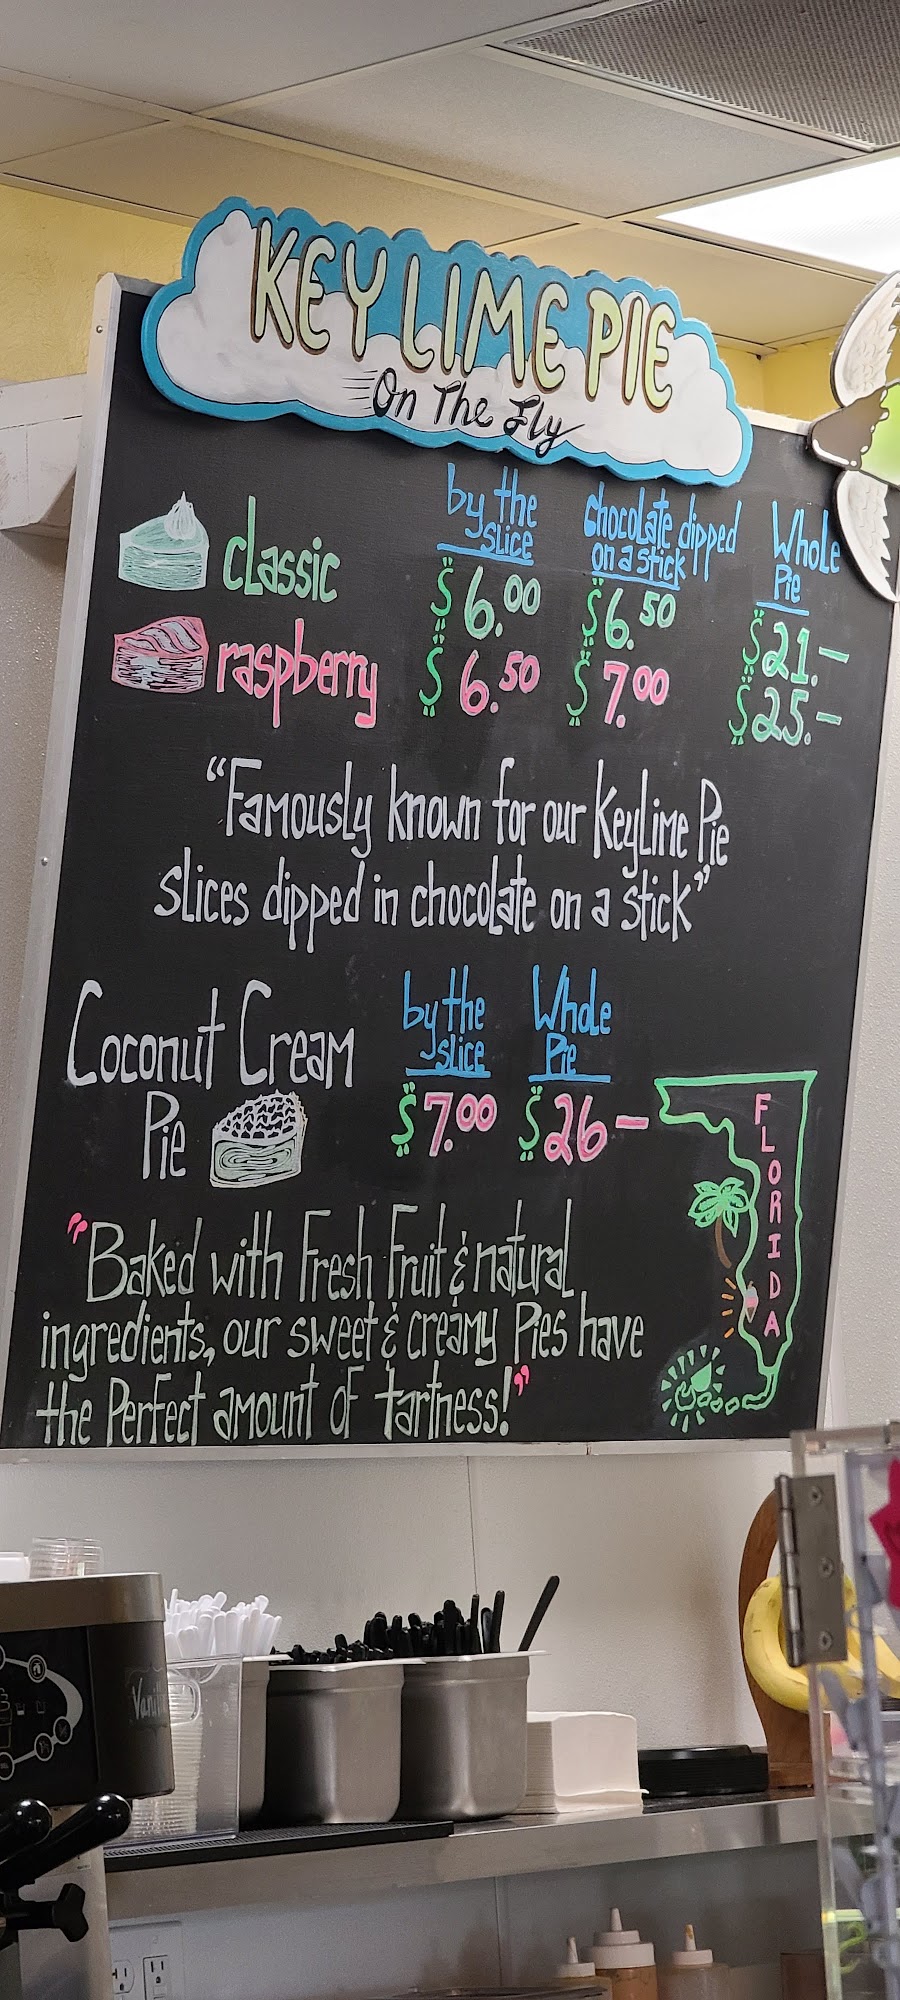 KEY LIME PIE
On The Fly
by the slice
chocolate dipped on a stick
Whole Pie
classic $6.00 $6.50 $21.—
raspberry $6.50 $7.00 $25.—
“Famously known for our KeyLime Pie
slices dipped in chocolate on a stick”
by the slice
Whole Pie
Coconut Cream
Pie
$7.00 $26—
FLORIDA
"Baked with Fresh Fruit & natural
ingredients, our sweet & creamy Pies have
the Perfect amount of tartness!"